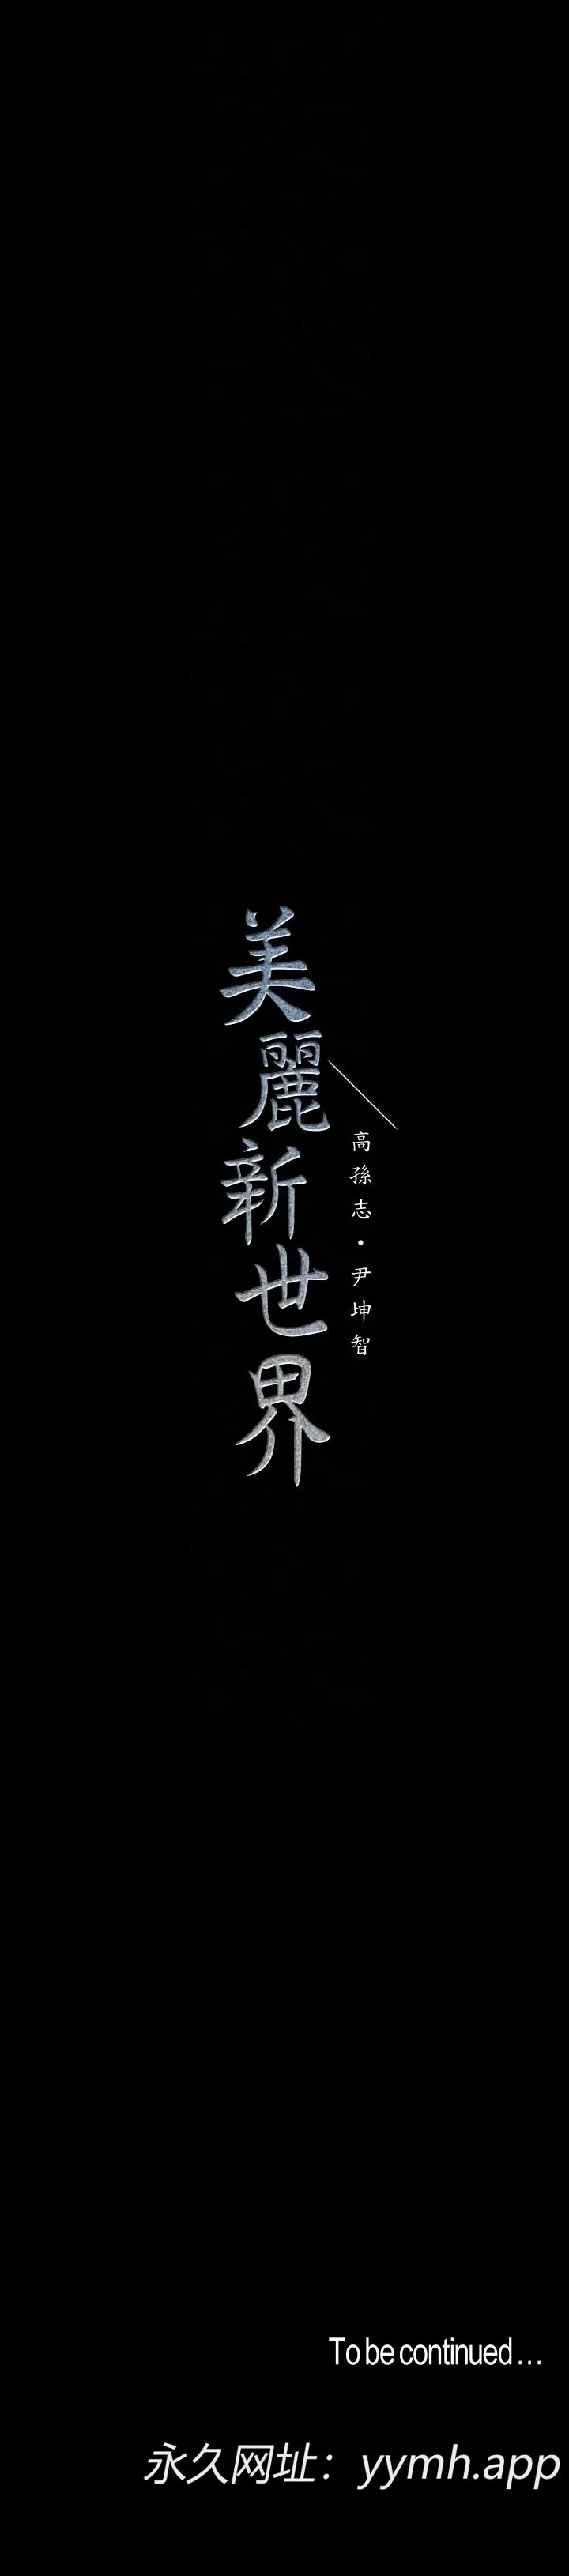 美麗新世界
高孫志·尹坤智
To be continued...
永久网址：yymh.app